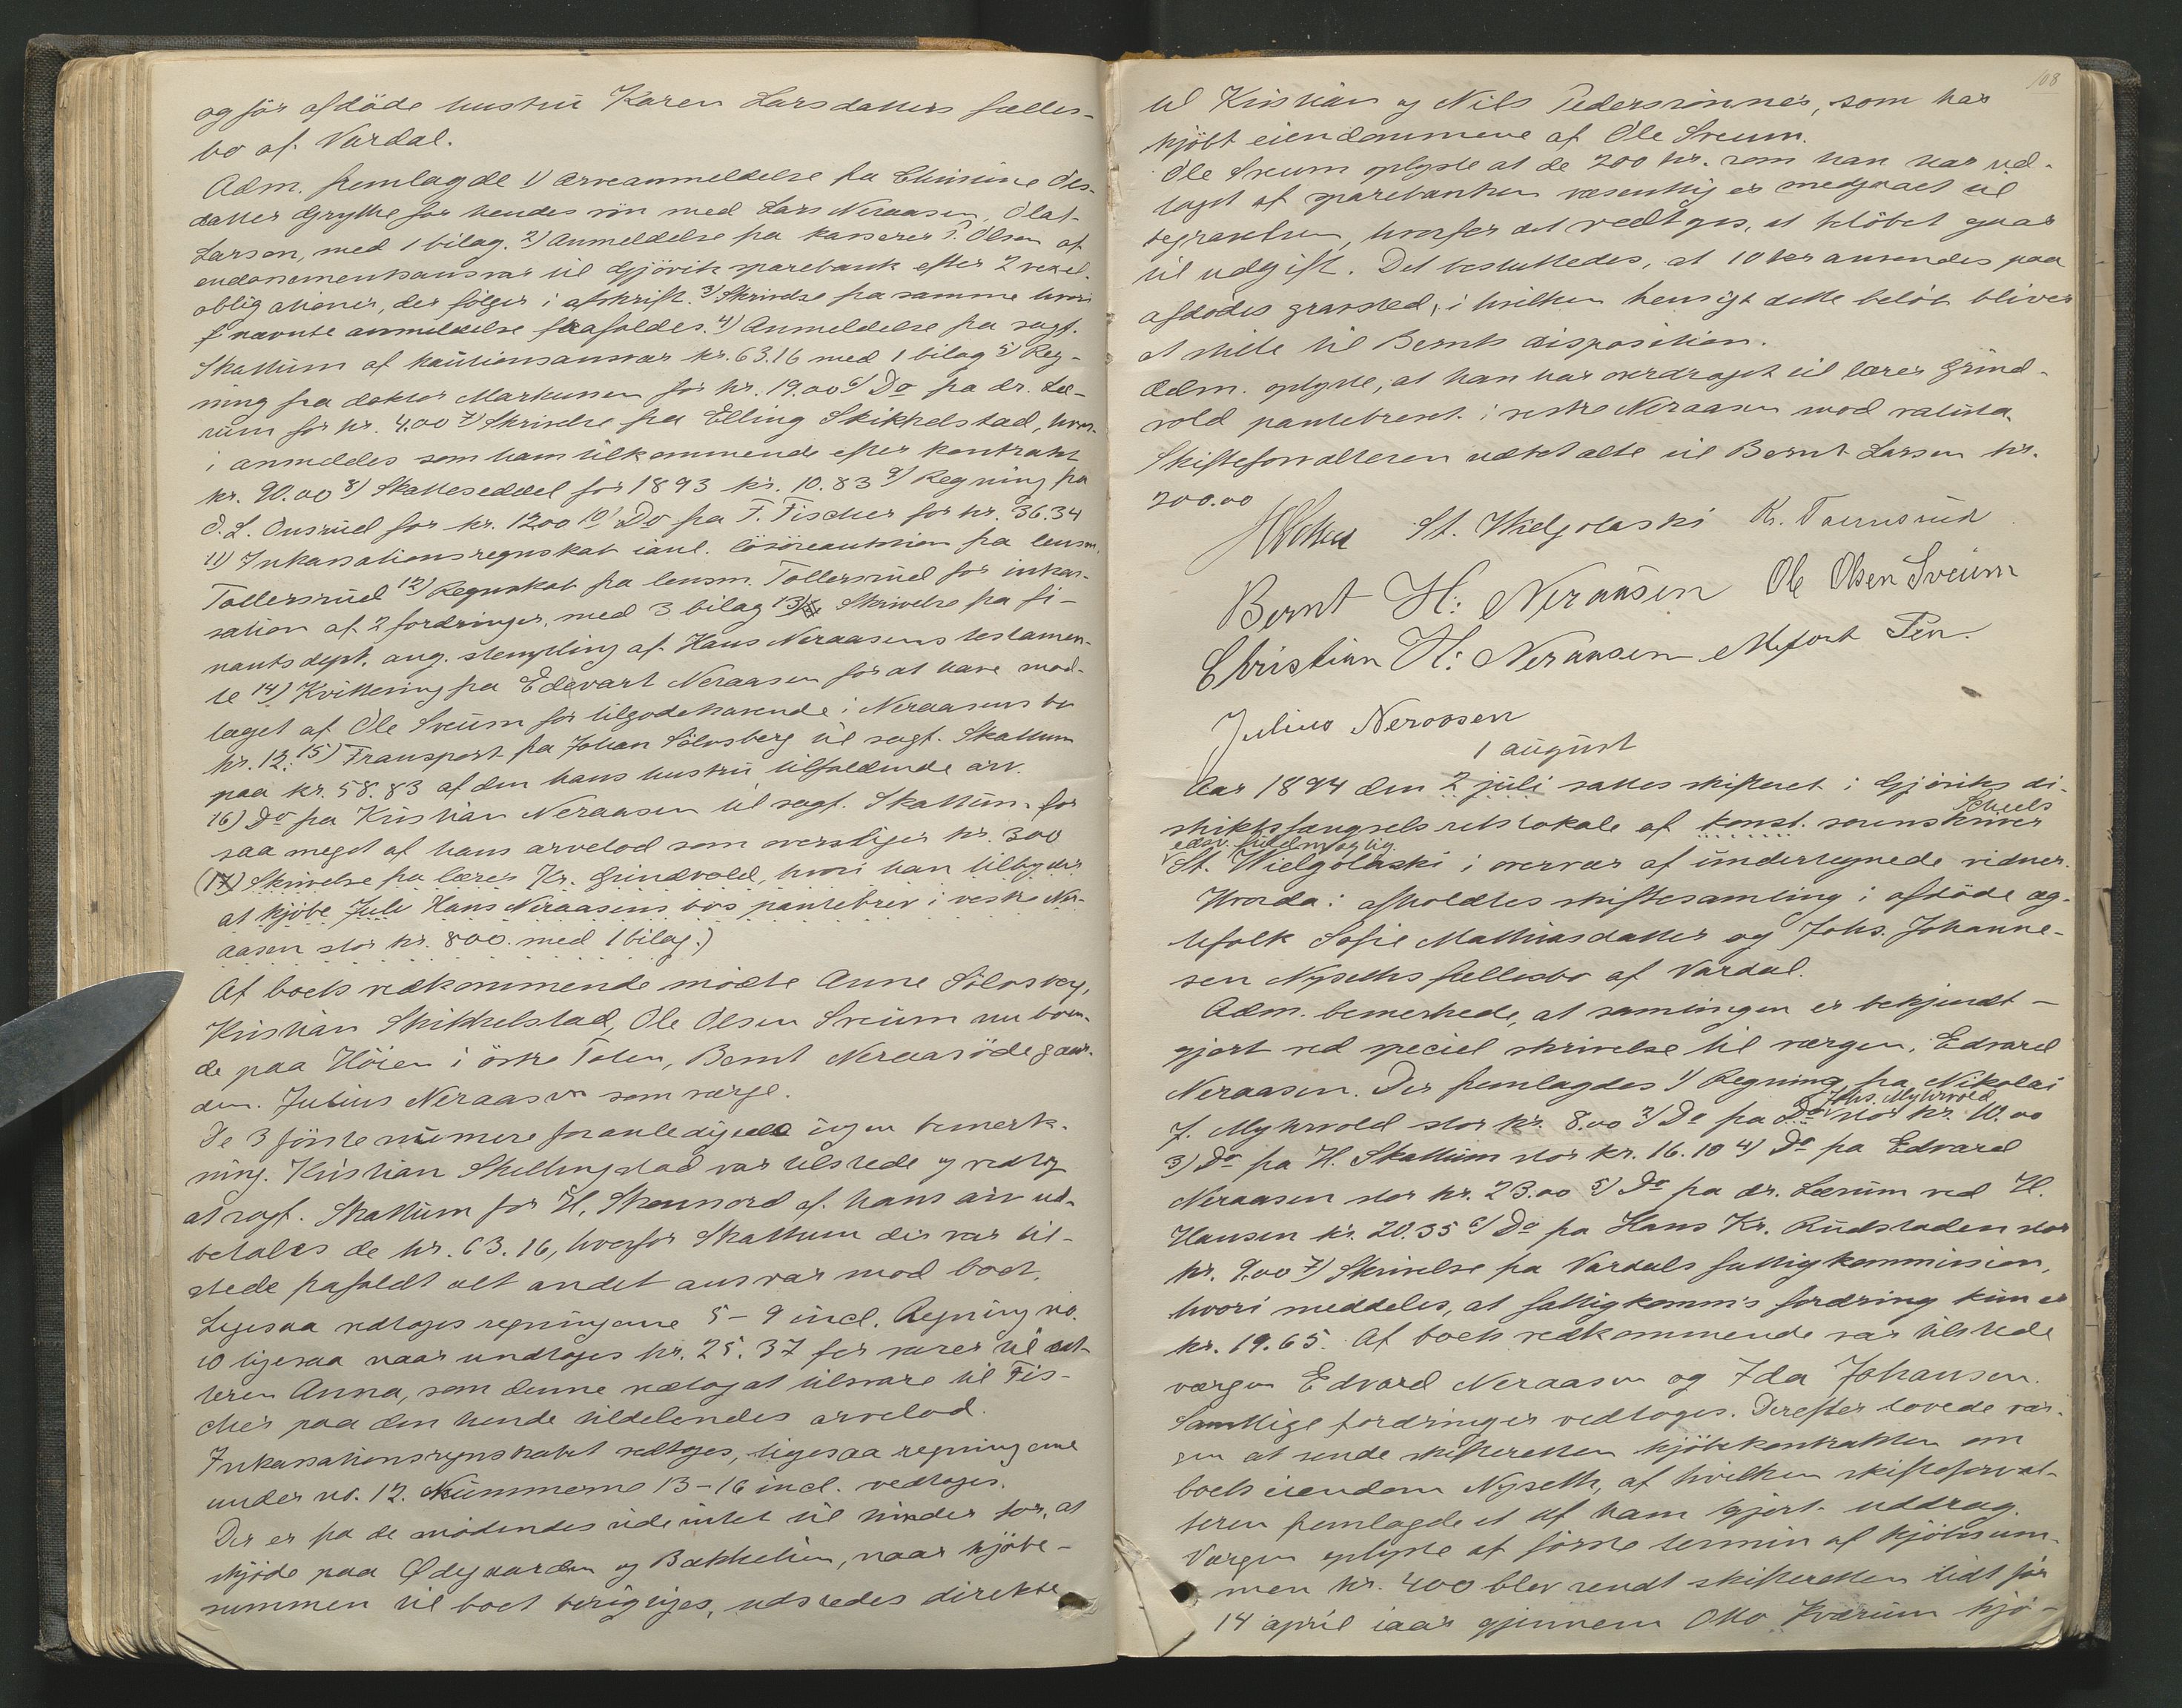 og før afdöde hustru Karen Larsdatters fælles-
bo af Vardal.
Adm. fremlagde 1) arveanmeldelse fra Christine Ols-
datter Grythe for hendes sön med Lars Neraasen, Olaf
Larsen, med 1 bilag. 2) Anmeldelse fra kasserer P. Olsen af
endossementsansvar til Gjövik sparebank efter 2 vexel-
obligationer, der fölger i afskrift. 3) Skrivelse fra samme hvori
nævnte anmeldelse frafaldes. 4) Anmeldelse fra sagf.
Skattum af kautionsansvar kr. 63.16 med 1 bilag 5) Reg-
ning fra doktor Markussen for kr. 19.00 6) Do fra dr. Læ-
rum for kr. 4.00 7) Skrivelse fra Elling Skikkelstad, hvor-
i anmeldes som ham tilkommende efter kontrakt
kr. 90.00 8) Skatteseddel for 1893 kr. 10.83 9) Regning fra
O. L. Onsrud for kr. 12.00 10) Do fra F. Fischer for kr. 36.34
11) Inkassationsregnskab incl. lösöreauktion fra lensm.
Tollersrud 12) Regnskab fra lensm. Tollersrud for inkas-
sation af 2 fordringer, med 3 bilag 13) Skrivelse fra fi-
nantsdept. ang. stempling af Hans Neraasens testamen-
te 14) Kvittering fra Edevart Neraasen for at have mod-
taget af Ole Sveum for tilgodehavende i Neraasens bo
kr. 12. 15) Transport fra Johan Sölvsberg til sagf. Skattum
paa kr. 58.83 af den hans hustru tilfaldende arv.
16) Do fra Kristian Neraasen til sagf. Skattum for
saa meget af hans arvelod som overstiger kr. 300
(17) Skrivelse fra lærer Kr. Grindvold, hvori han tilbyder
at kjöbe Hans Neraasens bos pantebrev i vestre Ner-
aasen stor kr. 800. med 1 bilag.)
Af boets vedkommende mödte Anne Sölvsberg,
Kristian Skikkelstad, Ole Olsen Sveum nu boen-
de paa Höien i östre Toten, Bernt Neraasödegaar-
den. Julius Neraasen som værge.
De 3 förste numere foranledigede ingen bemerk-
ning. Kristian Skellingstad var tilstede og vedtog
at sagf. Skattum for H. af hans arv ud-
betales de kr. 63.16, hvorfor Skattum der var til-
stede frafaldt alt andet ansvar mod boet.
Ligesaa vedtoges regningerne 5-9 incl. Regning no.
10 ligesaa naar undtages kr. 25.37 for varer til dat-
teren Anna, som denne vedtog at tilsvare til Fis-
cher paa den hende tildelendes arvelod.
Inkassationsregnskabet vedtoges, ligesaa regningerne
under no. 12. Nummerne 13-16 incl. vedtoges.
Der er fra de mödendes side intet til hinder for, at
skjöde paa Ödegaarden og Bækkelien, naar kjöbe-
summen til boet berigtiges, udstedes direkte
108
til Kristian og Nils Pedersönnes, som har
kjöbt eiendommene af Ole Sveum.
Ole Sveum oplyste at de 200 kr. som han har ud-
taget af sparebanken væsentlig er medgaaet til
begravelsen, hvorfor det vedtoges, at belöbet gaar
til udgift. Det besluttedes, at 10 kr anvendes paa
afdödes gravsted, i hvilken hensigt dette belöb bliver
at stille til Bernts disposition.
Adm. oplyste, at han har overdraget til lærer Grind-
vold pantebrevet i vestre Neraasen mod valuta.
Skifteforvalteren udbetalte til Bernt Larsen kr.
200.00
St. Wielgolaski Kr. Taernsrud
Bernt H: Neraasen Ole Olsen Sveum
Christian H: Neraasen
Julius Neraasen
1 august
Aar 1894 den 2 juli sattes skifteret i Gjöviks di-
striktsfængsels retslokale af konst. sorenskriver Scheels
edsv. fuldmægtig
St. Wielgolaski i overvær af undertegnede vidner.
Hvorda: afholdtes skiftesamling i afdöde æg-
tefolk Sofie Mathiasdatter og Johs. Johanne-
sen Nyseths fællesbo af Vardal.
Adm. bemerkede, at samlingen er bekjendt-
gjort ved speciel skrivelse til værgen, Edvard
Neraasen. Der fremlagdes 1) Regning fra Nikolai
J. Myhrvold stor kr. 8.00 2) Do fra Do Johs. Myhrvold stor kr. 10.00
3) Do fra H. Skattum stor kr. 16.10 4) Do fra Edvard
Neraasen stor kr. 23.00 5) Do fra dr. Lærum ved H.
Hansen kr. 20.35 6) Do fra Hans Kr. Rudstaden stor
kr. 9.00 7) Skrivelse fra Vardals fattigkommission,
hvori meddeles, at fattigkomm's fordring kun er
kr. 19.65. Af boets vedkommende var tilstede
værgen Edvard Neraasen og Ida Johansen.
Samtlige fordringer vedtoges. Derefter lovede vær-
gen at sende skifteretten kjöbekontrakten om
boets eiendom Nyseth, af hvilken skifteforval-
teren fremlagde et af ham gjort uddrag.
Værgen oplyste at förste termin af kjöbesum-
men kr. 400 blev sendt skifteretten lidt för
14 april iaar gjennem Otto Kværum kjö-